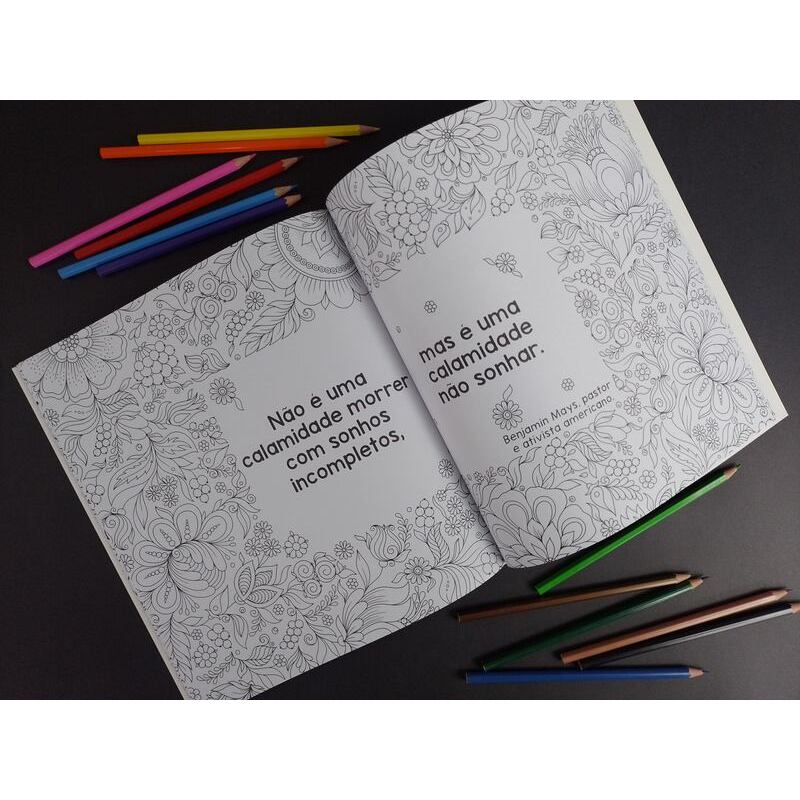 Não é uma
calamidade morrer
com sonhos
incompletos,
mas é uma
calamidade
não sonhar.
Benjamin Mays, pastor
e ativista americano.